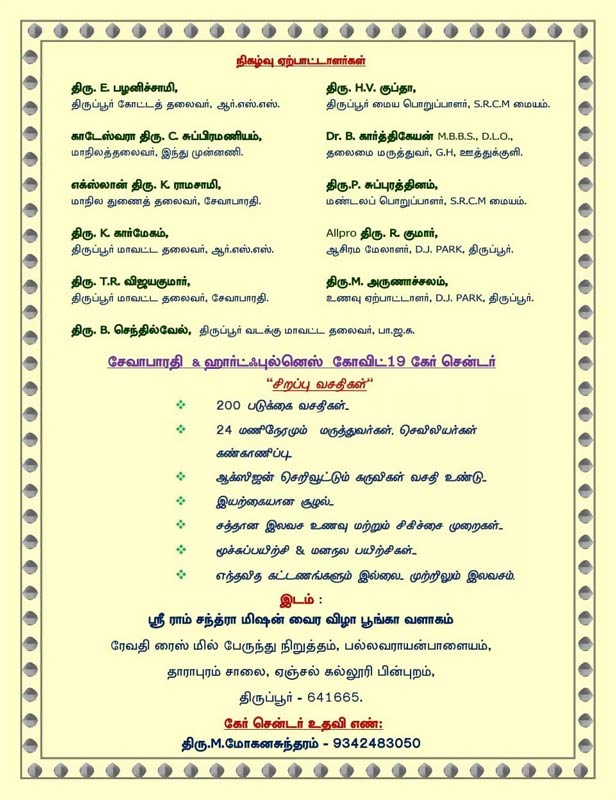 நிகழ்வு ஏற்பாட்டாளர்கள்
திரு. E. பழனிச்சாமி,
திருப்பூர் கோட்டத் தலைவர், ஆர்.எஸ்.எஸ்.
திரு. H.V. குப்தா,
திருப்பூர் மைய பொறுப்பாளர், S.R.C.M மையம்.
காடேஸ்வரா திரு. C. சுப்பிரமணியம்,
மாநிலத்தலைவர், இந்து முன்னணி.
Dr. B. கார்த்திகேயன் M.B.B.S., D.L.O.,
தலைமை மருத்துவர், G.H, ஊத்துக்குளி.
எக்ஸ்லான் திரு. K. ராமசாமி,
மாநில துணைத் தலைவர், சேவாபாரதி.
திரு.P. சுப்புரத்தினம்,
மண்டலப் பொறுப்பாளர், S.R.C.M மையம்.
திரு. K. கார்மேகம்,
திருப்பூர் மாவட்ட தலைவர், ஆர்.எஸ்.எஸ்.
Allpro திரு. R. குமார்,
ஆசிரம மேலாளர், D.J. PARK, திருப்பூர்.
திரு. T.R. விஜயகுமார்,
திருப்பூர் மாவட்ட தலைவர், சேவாபாரதி.
திரு.M. அருணாச்சலம்,
உணவு ஏற்பாட்டாளர், D.J. PARK, திருப்பூர்.
திரு. B. செந்தில்வேல், திருப்பூர் வடக்கு மாவட்ட தலைவர், பா.ஜ.க.
சேவாபாரதி & ஹார்ட்ஃபுல்னெஸ் கோவிட்19 கேர் சென்டர்
“சிறப்பு வசதிகள்”
❖ 200 படுக்கை வசதிகள்..
❖ 24 மணிநேரமும் மருத்துவர்கள், செவிலியர்கள்
கண்காணிப்பு.
❖ ஆக்ஸிஜன் செறிவூட்டும் கருவிகள் வசதி உண்டு..
❖ இயற்கையான சூழல்..
❖ சத்தான இலவச உணவு மற்றும் சிகிச்சை முறைகள்..
❖ மூச்சுப்பயிற்சி & மனநல பயிற்சிகள்..
❖ எந்தவித கட்டணங்களும் இல்லை. முற்றிலும் இலவசம்.
இடம் :
ஸ்ரீ ராம் சந்த்ரா மிஷன் வைர விழா பூங்கா வளாகம்
ரேவதி ரைஸ் மில் பேருந்து நிறுத்தம், பல்லவராயன்பாளையம்,
தாராபுரம் சாலை, ஏஞ்சல் கல்லூரி பின்புறம்,
திருப்பூர் - 641665.
கேர் சென்டர் உதவி எண்:
திரு.M.மோகனசுந்தரம் - 9342483050